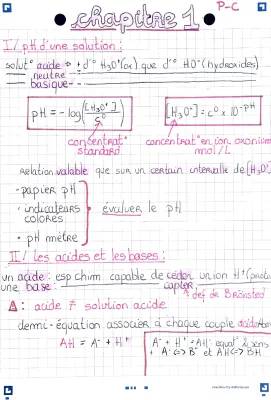 P-C
chapitre 1
I/ pH d'une solution :
solut° acide → + d'° H₃O⁺(ox) que d'° HO⁻(hydroxides)
neutre
basique
pH = -log([H₃O⁺]/c⁰)
[H₃O⁺] = c⁰ × 10^-pH
concentrat° standard
concentrat° en ion oxonium mol/L
Relation valable que sur un certain intervalle de [H₃O⁺]
- papier pH
• indicateurs colorés
• pH mètre
évaluer le pH
II/ Les acides et les bases :
un acide : esp chim capable de céder un ion H⁺ (proton
une base : capter
↑ déf de Brönsted
⚠ : acide ≠ solution acide
demi-équation associer à chaque couple acide/base
AH = A⁻ + H⁺
A⁻ + H⁺ = AH equat° 2 sens